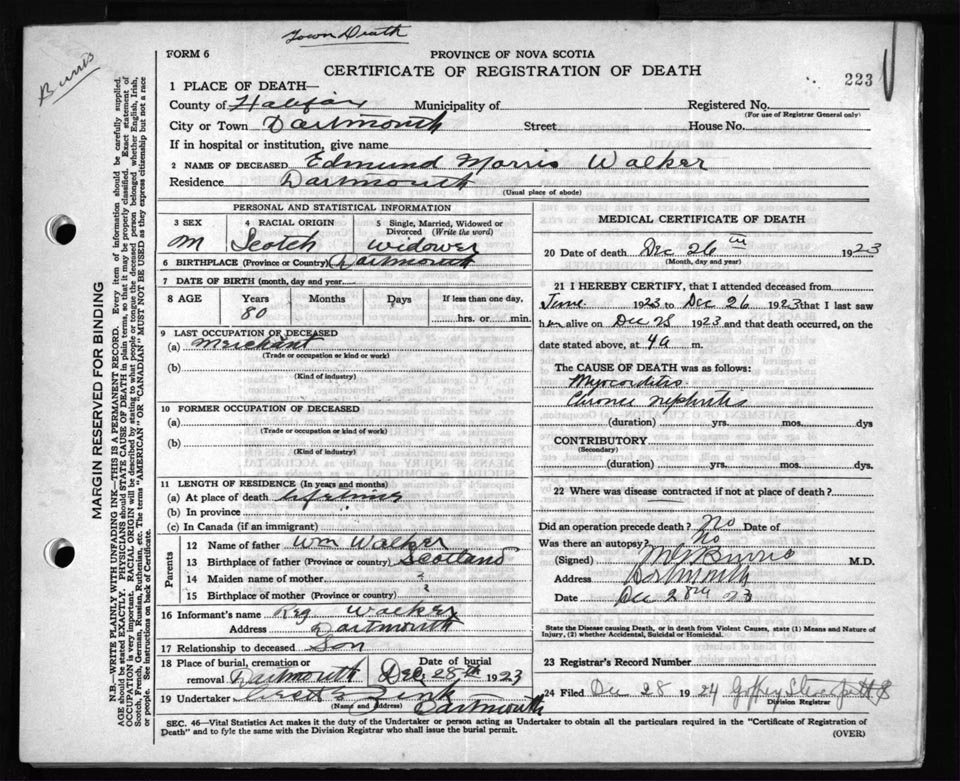 Town Death
Burns
FORM 6
PROVINCE OF NOVA SCOTIA
CERTIFICATE OF REGISTRATION OF DEATH
223
1 PLACE OF DEATH—
County of Halifax Municipality of Registered No.
(For use of Registrar General only)
City or Town Dartmouth Street House No.
If in hospital or institution, give name
2 NAME OF DECEASED Edmund Morris Walker
Residence Dartmouth
(Usual place of abode)
PERSONAL AND STATISTICAL INFORMATION
3 SEX 4 RACIAL ORIGIN 5 Single, Married, Widowed or Divorced (Write the word)
M Scotch widower
6 BIRTHPLACE (Province or Country) Dartmouth
7 DATE OF BIRTH (month, day and year)
8 AGE Years Months Days If less than one day,
80 hrs. or min.
9 LAST OCCUPATION OF DECEASED
(a) Merchant
(Trade or occupation or kind or work)
(b)
(Kind of industry)
10 FORMER OCCUPATION OF DECEASED
(a)
(Trade or occupation or kind or work)
(b)
(Kind of industry)
11 LENGTH OF RESIDENCE (In years and months)
(a) At place of death lifetime
(b) In province
(c) In Canada (if an immigrant)
Parents
12 Name of father Wm Walker
13 Birthplace of father (Province or country) Scotland
14 Maiden name of mother ?
15 Birthplace of mother (Province or country) ?
16 Informant's name Reg Walker
Address Dartmouth
17 Relationship to deceased Son
18 Place of burial, cremation or removal Dartmouth Date of burial Dec 28th 1923
19 Undertaker Zink
(Name and Address) Dartmouth
MEDICAL CERTIFICATE OF DEATH
20 Date of death Dec 26th 1923
(Month, day and year)
21 I HEREBY CERTIFY, that I attended deceased from
June 1923 to Dec 26 1923 that I last saw
him alive on Dec 25 1923 and that death occurred, on
date stated above, at 4 a m.
The CAUSE OF DEATH was as follows:
Myocarditis
Chronic nephritis
(duration) yrs. mos. dys
CONTRIBUTORY
(Secondary)
(duration) yrs. mos. dys.
22 Where was disease contracted if not at place of death?
Did an operation precede death? No Date of
Was there an autopsy? No
(Signed) Burns M.D.
Address Dartmouth
Date Dec 28th 23
State the Disease causing Death, or in death from Violent Causes, state (1) Means and Nature of
Injury, (2) whether Accidental, Suicidal or Homicidal.
23 Registrar's Record Number
24 Filed Dec 28 1924
Division Registrar
SEC. 46—Vital Statistics Act makes it the duty of the Undertaker or person acting as Undertaker to obtain all the particulars required in the "Certificate of Registration of
Death" and to fyle the same with the Division Registrar who shall issue the burial permit.
(OVER)
MARGIN RESERVED FOR BINDING
N.B.—WRITE PLAINLY WITH UNFADING INK—THIS IS A PERMANENT RECORD. Every item of information should be carefully supplied.
AGE should be stated EXACTLY. PHYSICIANS should STATE CAUSE OF DEATH in plain terms, so that it may be properly classified. Exact statement of
OCCUPATION is very important. RACIAL ORIGIN will be described by stating to what people or tongue the deceased person belonged whether English, Irish,
Scotch, French, German, Russian, Ruthenian, etc. The terms "AMERICAN" OR "CANADIAN" MUST NOT BE USED as they express citizenship but not a race
or people. See instructions on back of Certificate.